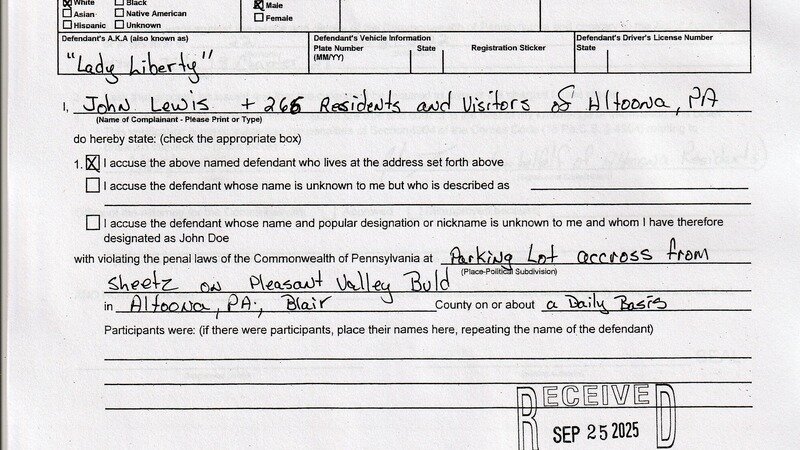 White
Black
Asian
Native American
Hispanic
Unknown
Male
Female
Defendant's A.K.A (also known as)
Defendant's Vehicle Information
Plate Number
State
Registration Sticker
(MM/YY)
Defendant's Driver's License Number
State
"Lady Liberty"
I, John Lewis + 266 Residents and Visitors of Altoona, PA
(Name of Complainant - Please Print or Type)
do hereby state: (check the appropriate box)
1. X I accuse the above named defendant who lives at the address set forth above
I accuse the defendant whose name is unknown to me but who is described as
I accuse the defendant whose name and popular designation or nickname is unknown to me and whom I have therefore
designated as John Doe
with violating the penal laws of the Commonwealth of Pennsylvania at Parking Lot accross from
(Place-Political Subdivision)
Sheetz on Pleasant Valley Buld
in Altoona, PA., Blair County on or about a Daily Basis
Participants were: (if there were participants, place their names here, repeating the name of the defendant)
RECEIVED
SEP 25 2025